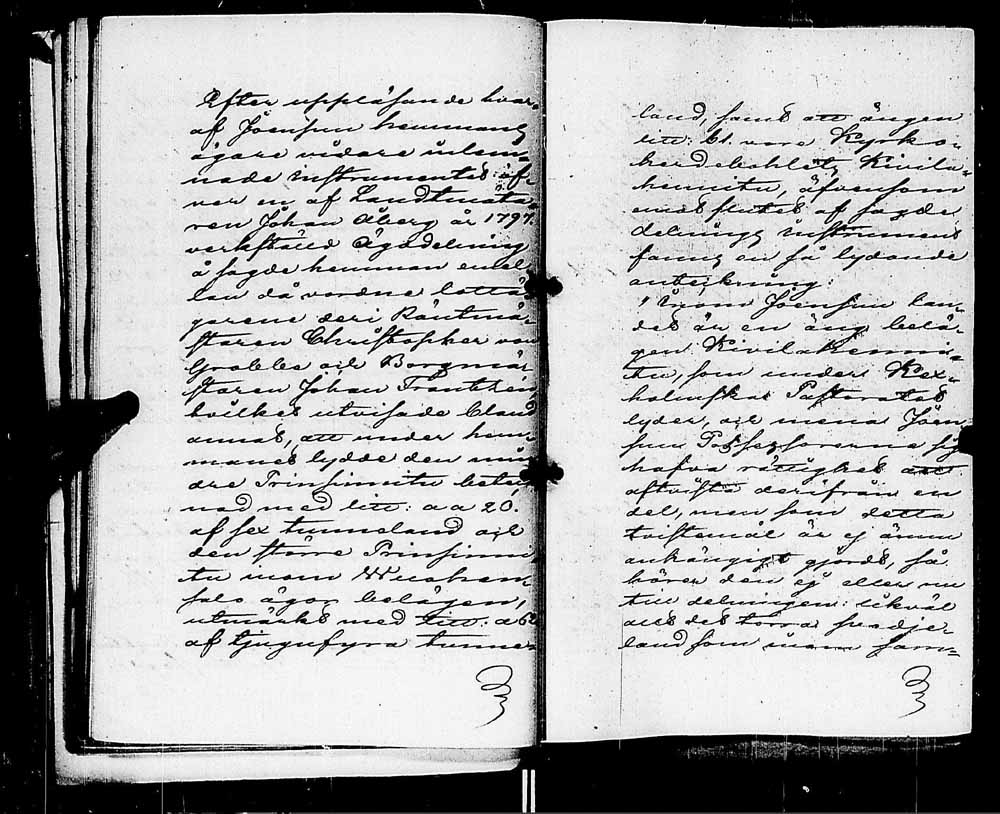 Efter uppläsande hvar-
af Joensuu hemmans
ägare vidare inlem-
nade Instrumentet öf-
ver en af Landtmäta-
ren Johan Åberg år 1797.
verkställd ägodelning
å sagde hemman emel-
lan då vordne lottä-
garene deri Räntmä-
staren Christopher von
Groble och Borgmä-
staren Johan Tranthén
hvilket utvisade bland
annat, att under hem-
manet lydde den min-
dre Prinsinniitu beteck-
nad med litt: a a 20.
af sex tunneland och
den större Prinsinni-
tu inom Wuohen-
salo ägor belägen,
utmärkt med litt: a 62
af tjugufyra tunne-
land, samt att ängen
litt: b1. vore Kyrko-
herdebohlet, Kivila-
henniitu, äfvensom
emot slutet af sagde
delnings instrument
fanns en så lydande
anteckning:
"Inom Joensuu lan-
det är en äng belä-
gen Kivilahennii-
tu, som under Kex-
holmska Pastoratet
lyder, och mena Joen-
suu Possessorerne sig
hafva rättighet att
aftvista derifrån en
del, men som detta
tvistemål är ej ännu
anhängigt gjordt, så
hörer den ej eller nu
till delningen: likväl
att det torra svedje-
land som inom sam-